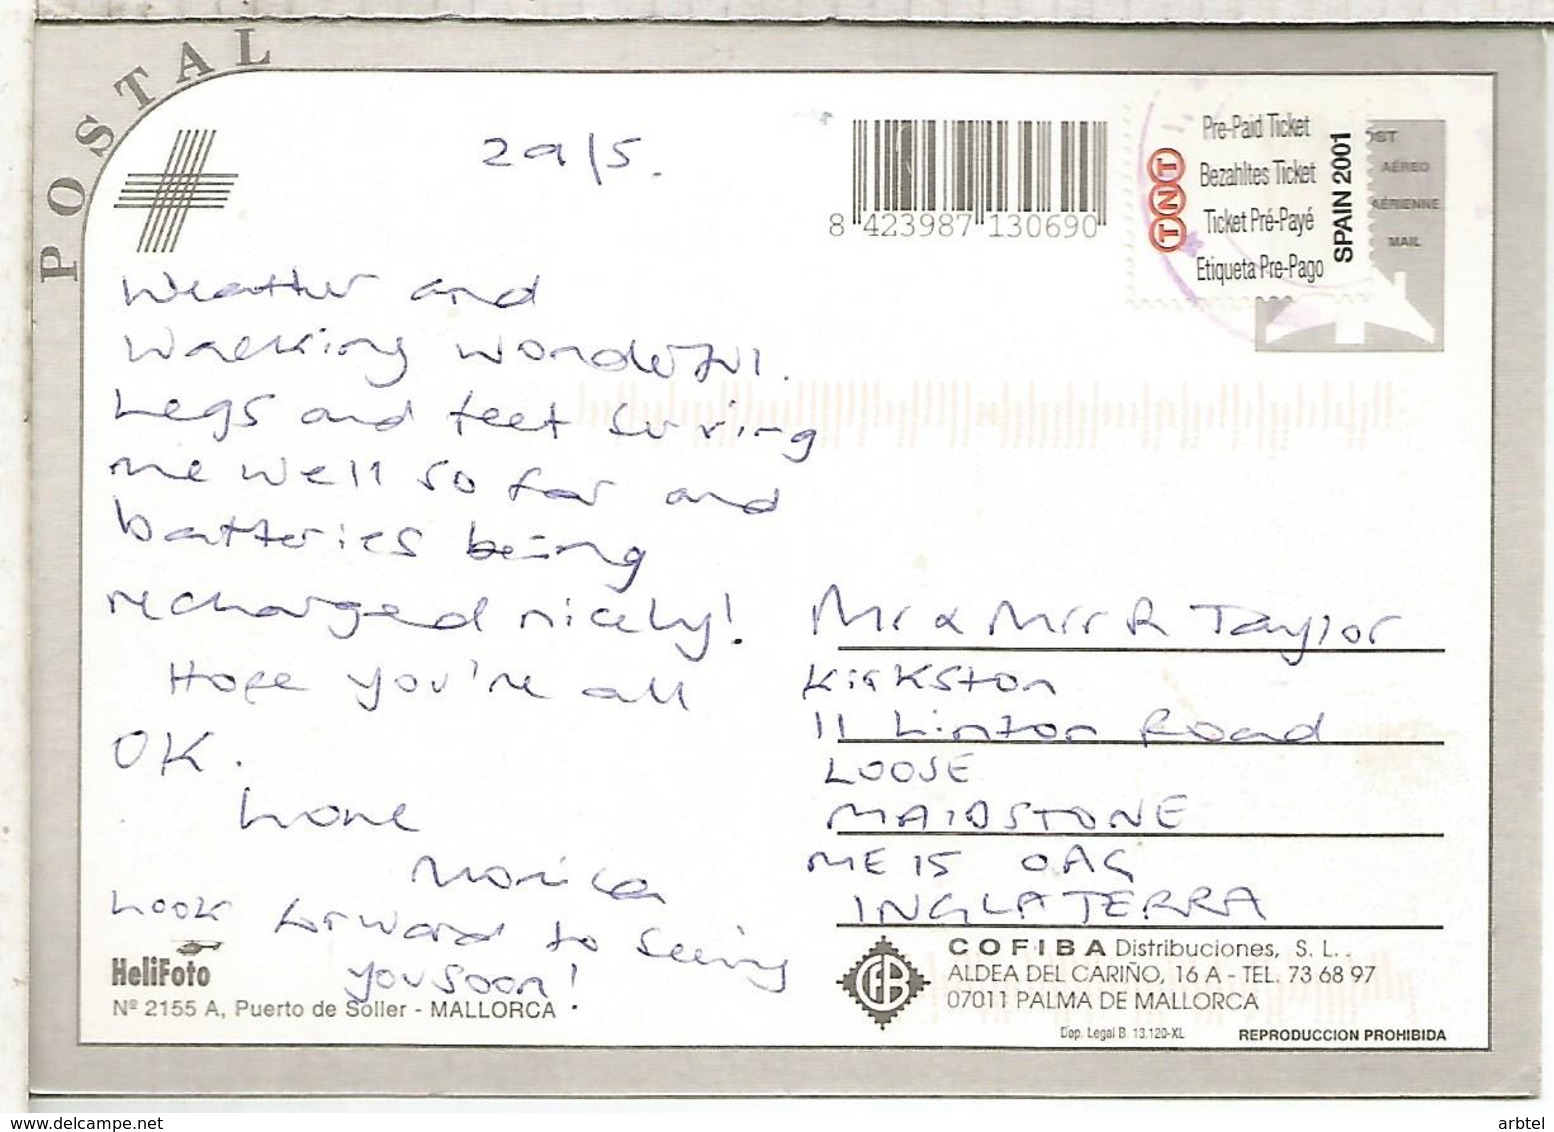 POSTAL
29/5.
8 423987 130690
TNT
Pre-Paid Ticket
Bezahltes Ticket
Ticket Pré-Payé
Etiqueta Pre-Pago
SPAIN 2001
OST
AÉREO
AÉRIENNE
MAIL
Weather and
Walking wonderful.
Legs and feet serving
me well so far and
batteries being
recharged nicely!
Hope you're all
OK.
Love
Monica
Look forward to seeing
you soon!
Mr & Mrs R Taylor
Kirkston
11 Linton Road
LOOSE
MAIDSTONE
ME15 0AG
INGLATERRA
HeliFoto
Nº 2155 A, Puerto de Soller - MALLORCA
COFIBA Distribuciones, S. L..
ALDEA DEL CARIÑO, 16 A - TEL. 73 68 97
07011 PALMA DE MALLORCA
Dep. Legal B. 13.120-XL
REPRODUCCION PROHIBIDA
www.delcampe.net
arbtel